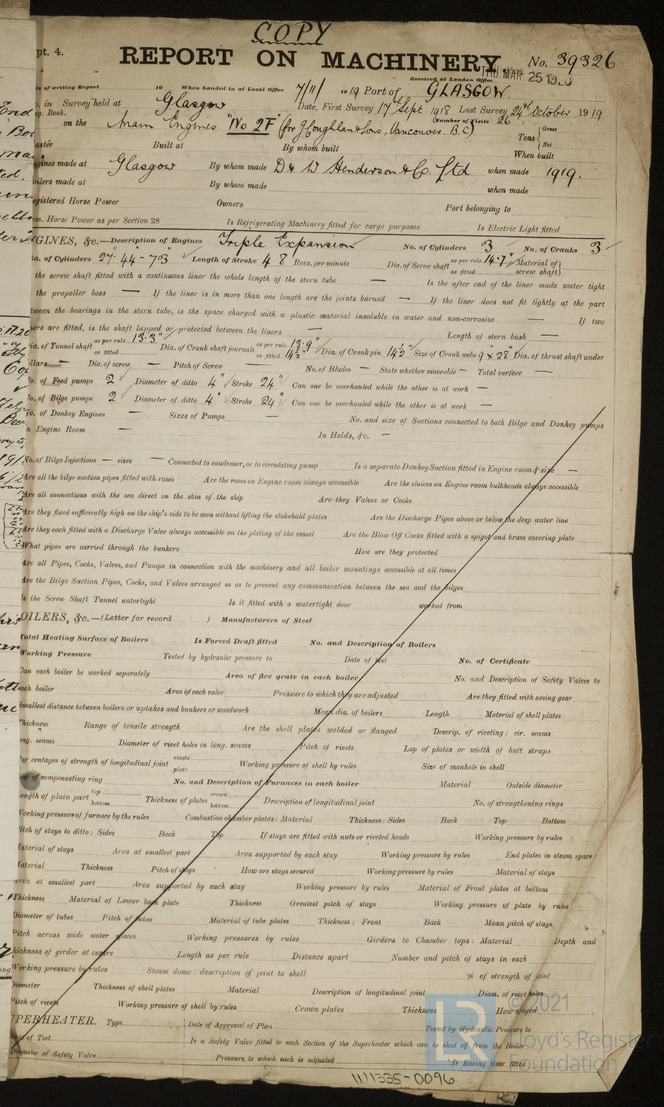 COPY
pt. 4.
REPORT ON MACHINERY. No. 39326
Received at London Office THU. MAR 25 1920
te of writing Report 19 When handed in at Local Office 7/11/ 1919 Port of GLASGOW
o. in Survey held at Glasgow Date, First Survey 17th Sept 1918 Last Survey 24th October 1919
g. Book. (Number of Visits 26
on the Main Engines "No 2F" (for J Coughlan & Sons, Vancouver. B.C) Tons { Gross Net
aster Built at By whom built When built
ngines made at Glasgow By whom made D & W Henderson & Co. Ltd when made 1919.
oilers made at By whom made when made
egistered Horse Power Owners Port belonging to
om. Horse Power as per Section 28 Is Refrigerating Machinery fitted for cargo purposes Is Electric Light fitted
NGINES, &c.—Description of Engines Triple Expansion No. of Cylinders 3 No. of Cranks 3
ia. of Cylinders 27" 44 - 73 Length of Stroke 48 Revs. per minute Dia. of Screw shaft as per rule 14.7" as fitted Material of screw shaft
the screw shaft fitted with a continuous liner the whole length of the stern tube — Is the after end of the liner made water tight
the propeller boss — If the liner is in more than one length are the joints burned — If the liner does not fit tightly at the part
tween the bearings in the stern tube, is the space charged with a plastic material insoluble in water and non-corrosive — If two
ers are fitted, is the shaft lapped or protected between the liners — Length of stern bush —
ia. of Tunnel shaft as per rule 13.3" as fitted Dia. of Crank shaft journals as per rule 13.9" as fitted 14½ Dia. of Crank pin 14½" Size of Crank webs 9 x 28" Dia. of thrust shaft under
llars — Dia. of screw — Pitch of Screw — No. of Blades — State whether moveable — Total surface —
o. of Feed pumps 2 Diameter of ditto 4" Stroke 24" Can one be overhauled while the other is at work —
o. of Bilge pumps 2 Diameter of ditto 4" Stroke 24" Can one be overhauled while the other is at work —
o. of Donkey Engines — Sizes of Pumps — No. and size of Suctions connected to both Bilge and Donkey pumps
n Engine Room — In Holds, &c. —
No. of Bilge Injections — sizes — Connected to condenser, or to circulating pump Is a separate Donkey Suction fitted in Engine room & size —
Are all the bilge suction pipes fitted with roses Are the roses in Engine room always accessible Are the sluices on Engine room bulkheads always accessible
Are all connections with the sea direct on the skin of the ship Are they Valves or Cocks
Are they fixed sufficiently high on the ship's side to be seen without lifting the stokehold plates Are the Discharge Pipes above or below the deep water line
Are they each fitted with a Discharge Valve always accessible on the plating of the vessel Are the Blow Off Cocks fitted with a spigot and brass covering plate
What pipes are carried through the bunkers How are they protected
Are all Pipes, Cocks, Valves, and Pumps in connection with the machinery and all boiler mountings accessible at all times
Are the Bilge Suction Pipes, Cocks, and Valves arranged so as to prevent any communication between the sea and the bilges
Is the Screw Shaft Tunnel watertight Is it fitted with a watertight door worked from
OILERS, &c.—(Letter for record ) Manufacturers of Steel
Total Heating Surface of Boilers Is Forced Draft fitted No. and Description of Boilers
Working Pressure Tested by hydraulic pressure to Date of test No. of Certificate
Can each boiler be worked separately Area of fire grate in each boiler No. and Description of Safety Valves to
each boiler Area of each valve Pressure to which they are adjusted Are they fitted with easing gear
Smallest distance between boilers or uptakes and bunkers or woodwork Mean dia. of boilers Length Material of shell plates
Thickness Range of tensile strength Are the shell plates welded or flanged Descrip. of riveting: cir. seams
ong. seams Diameter of rivet holes in long. seams Pitch of rivets Lap of plates or width of butt straps
Per centages of strength of longitudinal joint rivets plate Working pressure of shell by rules Size of manhole in shell
of compensating ring No. and Description of Furnaces in each boiler Material Outside diameter
Length of plain part top bottom Thickness of plates crown bottom Description of longitudinal joint No. of strengthening rings
Working pressure of furnace by the rules Combustion chamber plates: Material Thickness: Sides Back Top Bottom
Pitch of stays to ditto: Sides Back Top If stays are fitted with nuts or riveted heads Working pressure by rules
Material of stays Area at smallest part Area supported by each stay Working pressure by rules End plates in steam space:
Material Thickness Pitch of stays How are stays secured Working pressure by rules Material of stays
Area at smallest part Area supported by each stay Working pressure by rules Material of Front plates at bottom
Thickness Material of Lower back plate Thickness Greatest pitch of stays Working pressure of plate by rules
Diameter of tubes Pitch of tubes Material of tube plates Thickness: Front Back Mean pitch of stays
Pitch across wide water spaces Working pressures by rules Girders to Chamber tops: Material Depth and
thickness of girder at centre Length as per rule Distance apart Number and pitch of stays in each
Working pressure by rules Steam dome: description of joint to shell % of strength of joint
Diameter Thickness of shell plates Material Description of longitudinal joint Diam. of rivet holes
Pitch of rivets Working pressure of shell by rules Crown plates Thickness How stayed
UPERHEATER. Type Date of Approval of Plan Tested by Hydraulic Pressure to
Date of Test Is a Safety Valve fitted to each Section of the Superheater which can be shut off from the Boiler
Diameter of Safety Valve Pressure to which each is adjusted Is Easing Gear fitted
© 2021
LR
Lloyd's Register
Foundation
W1335-0096